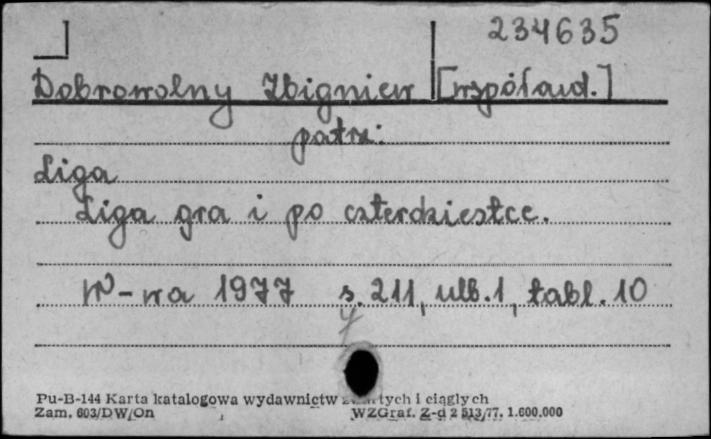 234635
Dobrowolny Zbigniew [współaut.]
patrz:
Liga
Liga gra i po czterdziestce.
W-wa 1977 s. 211, ulb. 1, tabl. 10
Pu-B-144 Karta katalogowa wydawnictw i ciągłych
Zam. 603/DW/On WZGraf. Z-d 2 513/77. 1.600.000